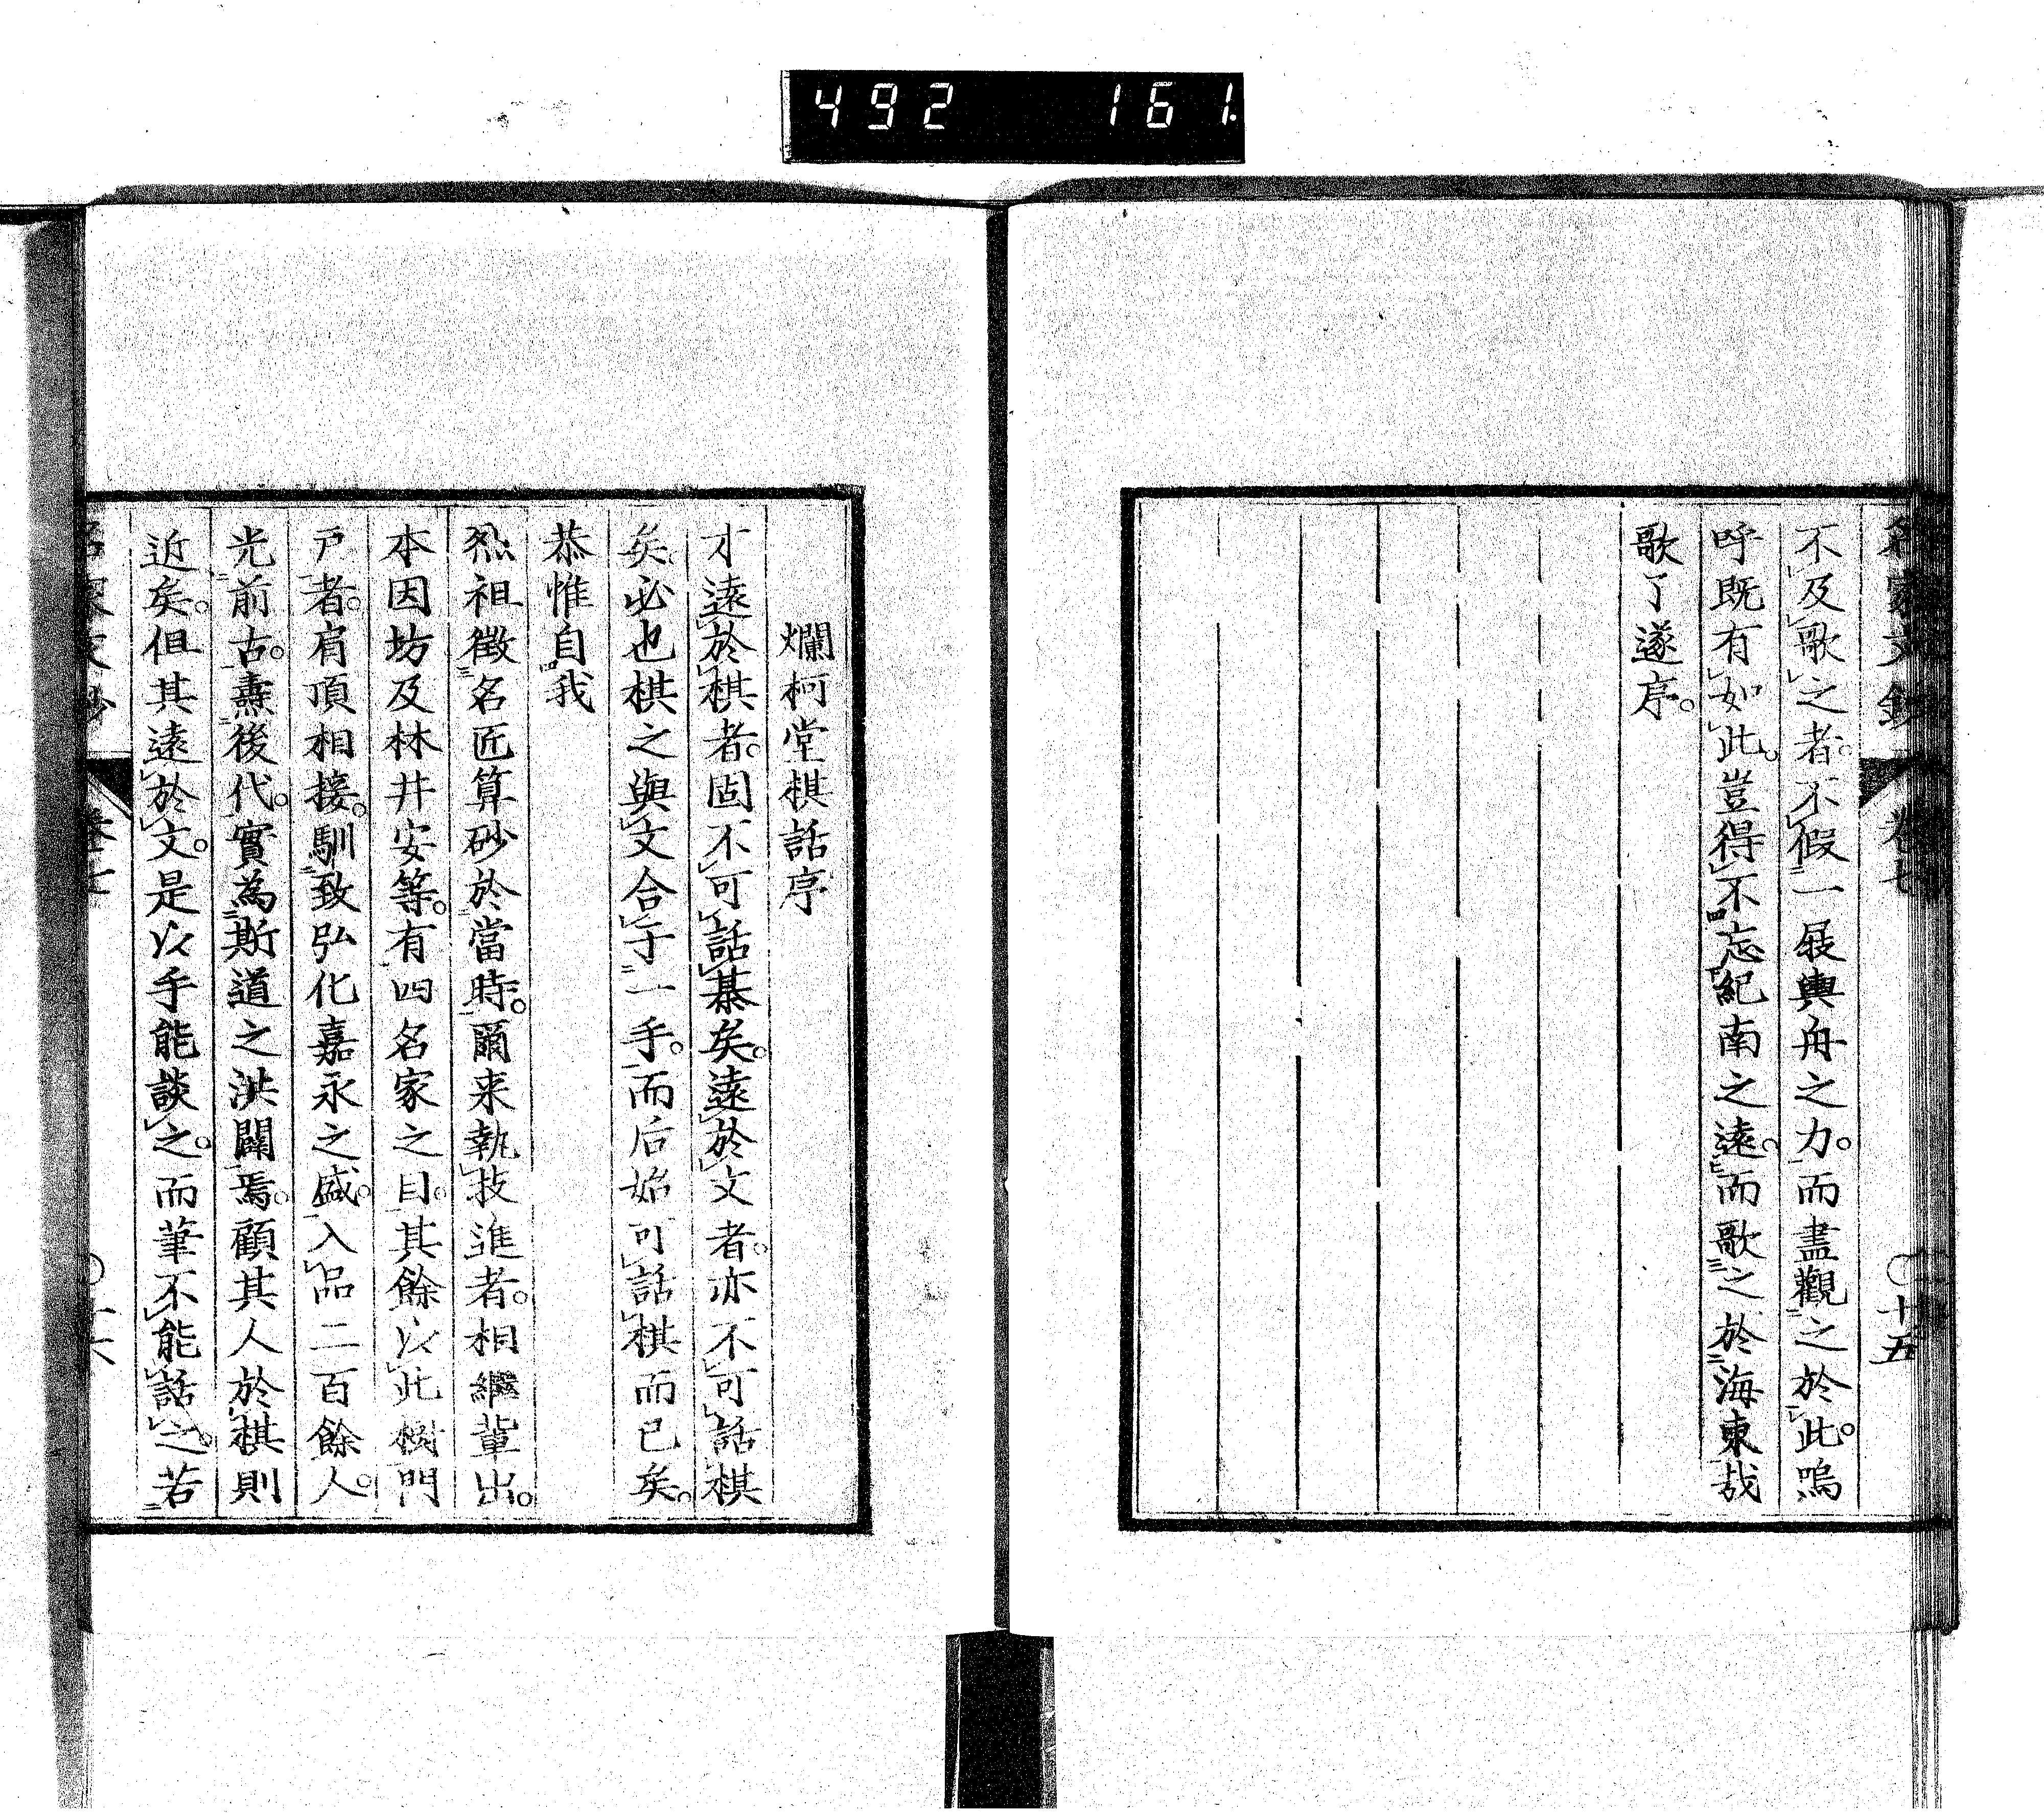 492 161.
名家文鈔 卷七 〇十五
不及歌之者。不假一屐輿舟之力。而盡觀之於此。嗚
呼既有如此。豈得不忘紀南之遠。而歌之於海東哉
歌了遂序。
爛柯堂棋話序
才遠於棋者。固不可話棊矣。遠於文者。亦不可話棋
矣。必也棋之與文合于一手。而后始可話棋而已矣。
恭惟自我
烈祖徵名匠算砂於當時。爾来執技進者。相繼輩出。
本因坊及林井安等。有四名家之目。其餘以此樹門
戸者。肩頂相接。馴致弘化嘉永之盛。入品二百餘人。
光前古。燾後代。實為斯道之洪闢焉。顧其人於棋則
近矣。但其遠於文。是以手能談之。而筆不能話之。若
名家文鈔 卷七 〇十六